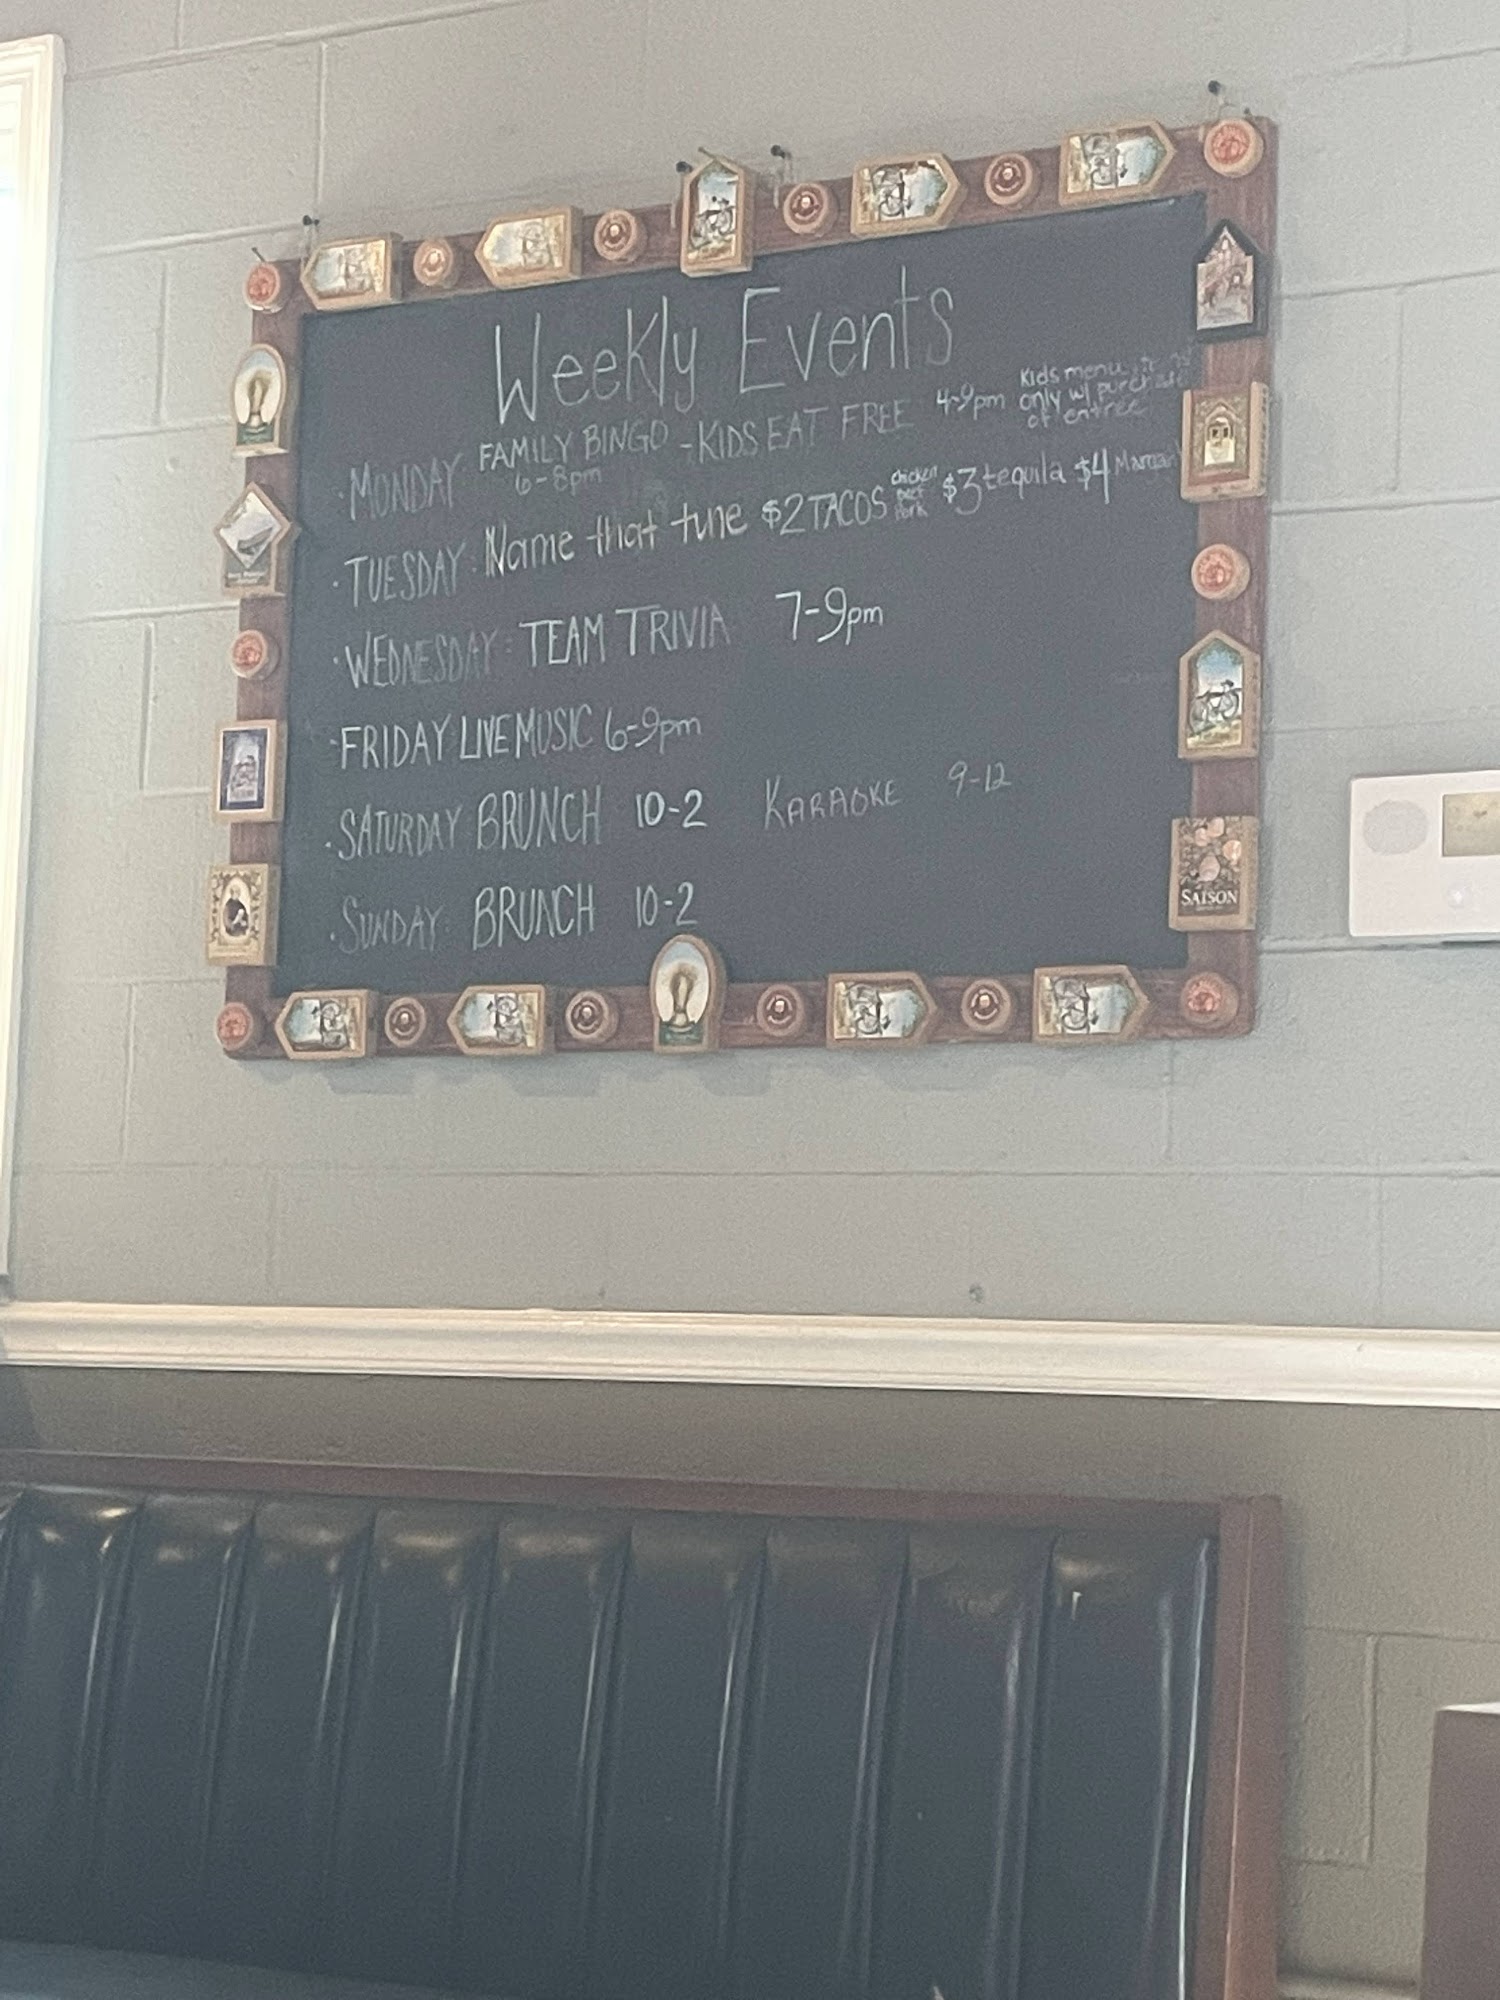 Weekly Events
· MONDAY: FAMILY BINGO - KIDS EAT FREE 4-9pm
6-8pm
Kids menu
only w/ purchase
of entree
· TUESDAY: Name that tune $2 TACOS $3 tequila $4
chicken
beef
Pork
· WEDNESDAY: TEAM TRIVIA 7-9pm
· FRIDAY LIVE MUSIC 6-9pm
· SATURDAY BRUNCH 10-2 KARAOKE 9-12
· SUNDAY: BRUNCH 10-2
SAISON